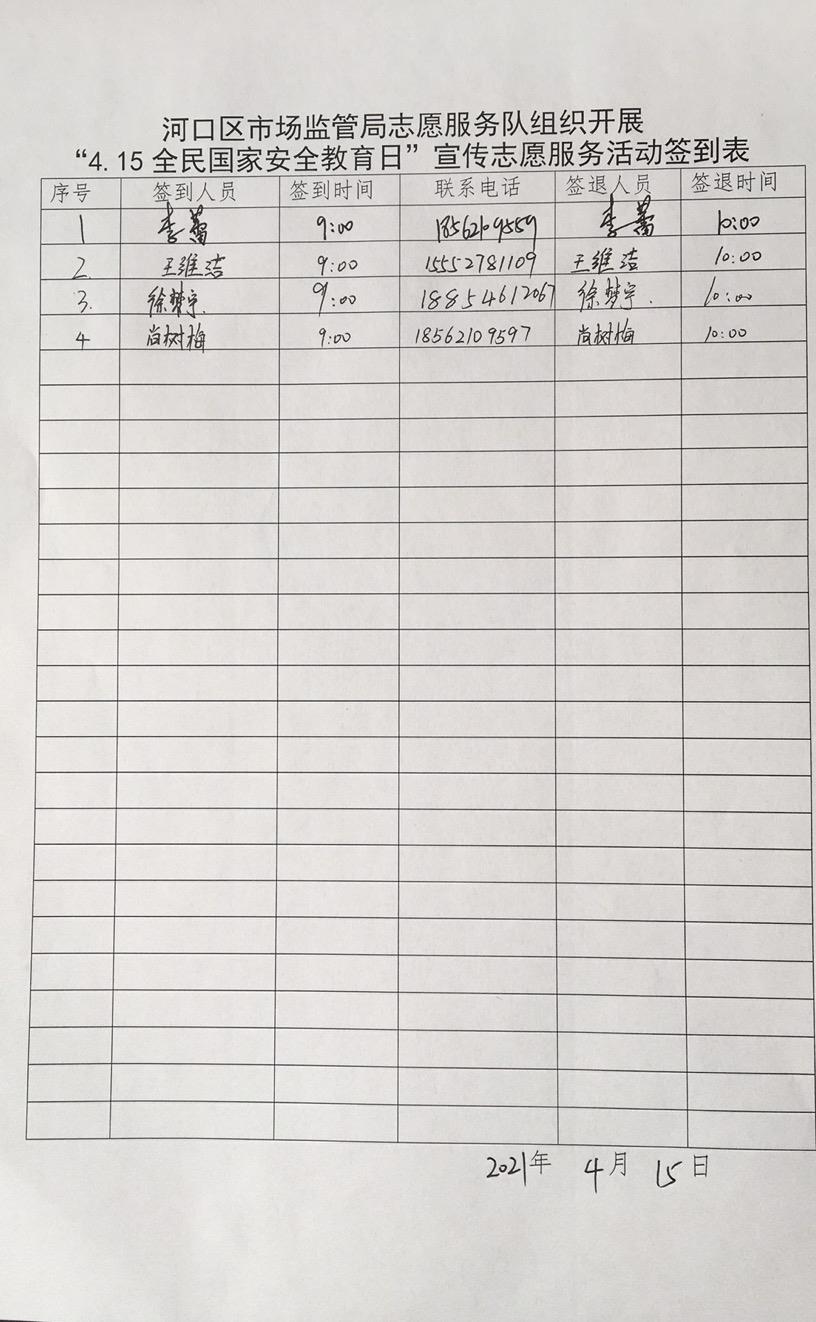 河口区市场监管局志愿服务队组织开展
“4.15全民国家安全教育日”宣传志愿服务活动签到表
序号 签到人员 签到时间 联系电话 签退人员 签退时间
1 李蕾 9:00 18562109559 李蕾 10:00
2 王维洁 9:00 15552781109 王维洁 10:00
3. 徐梦宇. 9:00 18854612067 徐梦宇. 10:00
4 尚树梅 9:00 18562109597 尚树梅 10:00
2021年 4月 15日